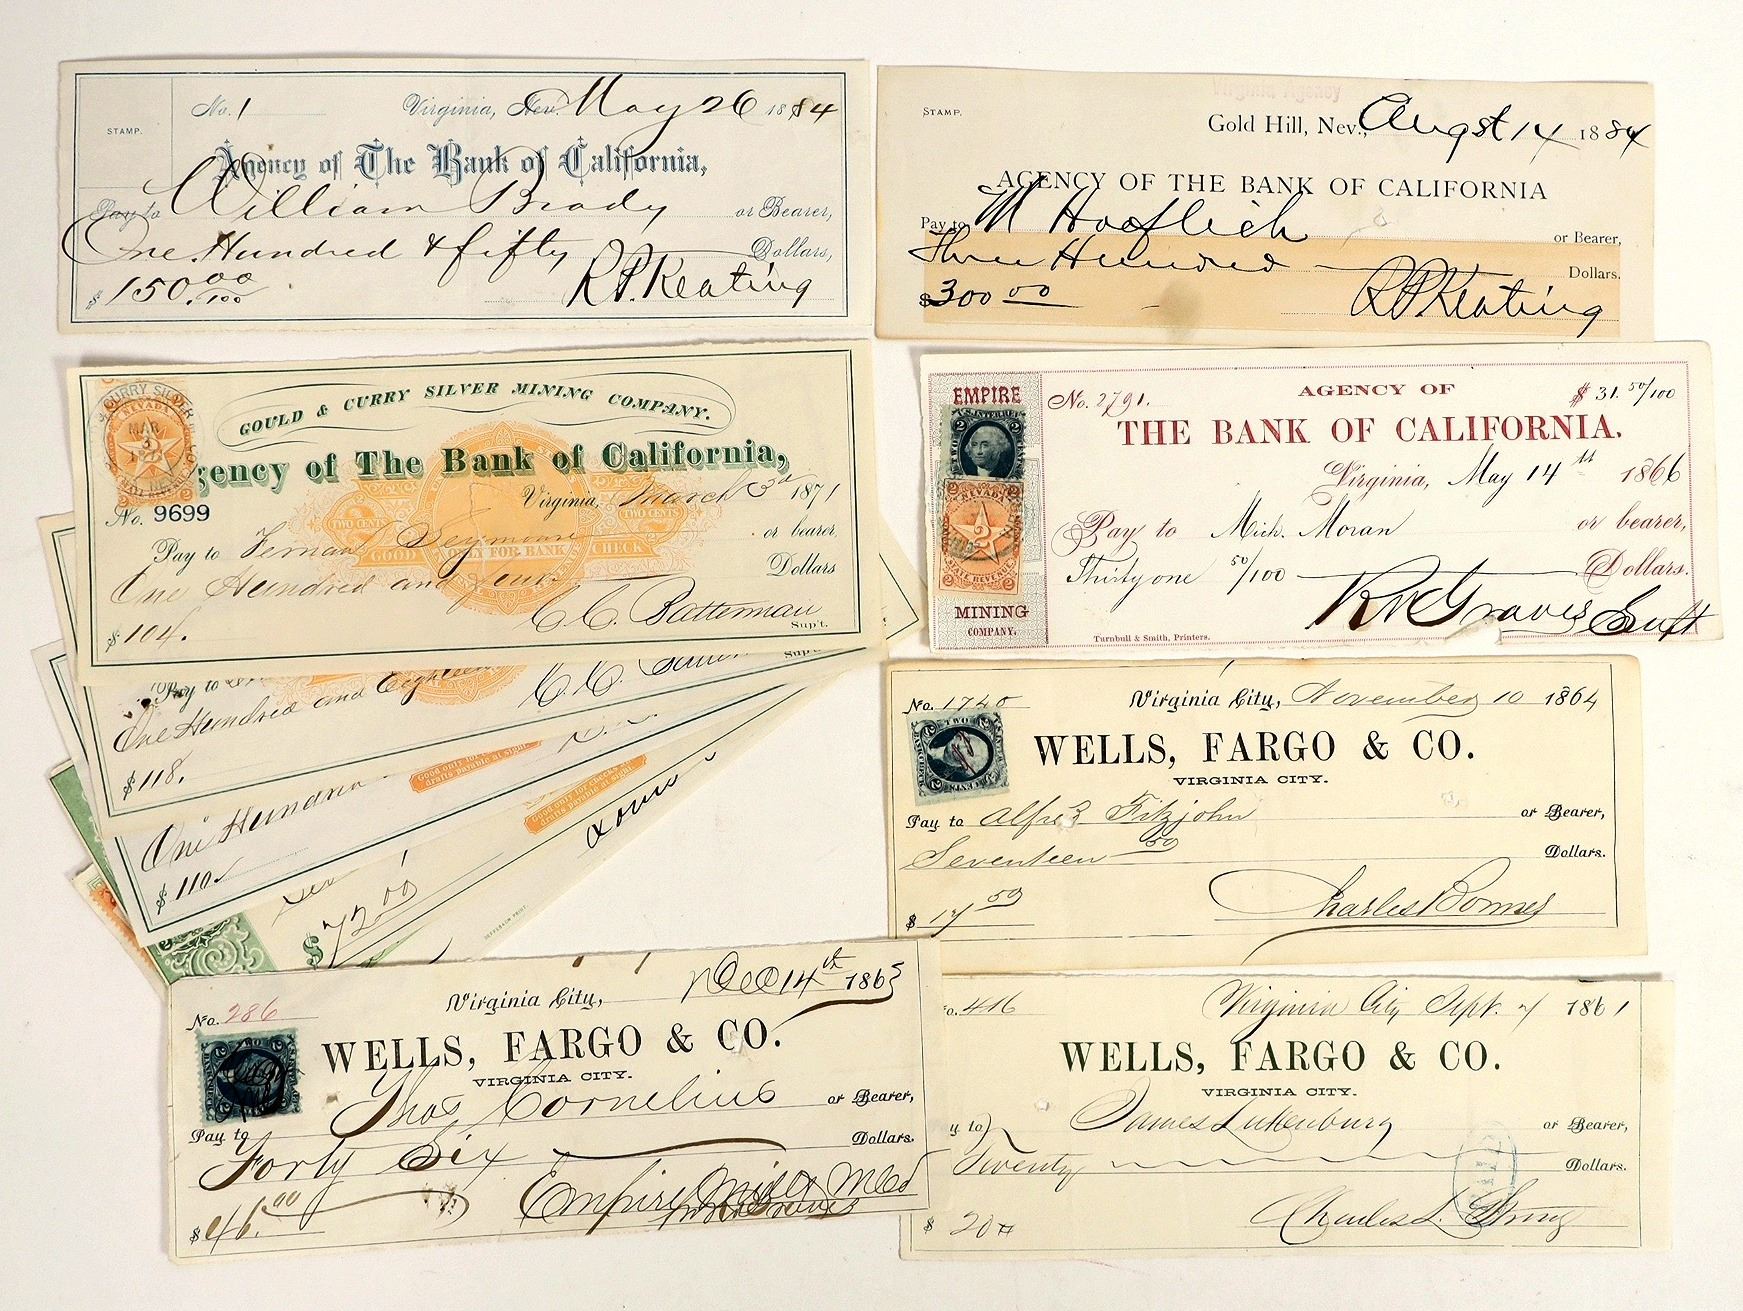 No. 1 Virginia, Nev. May 26 1884
STAMP.
Agency of The Bank of California,
Pay to William Brady or Bearer,
One Hundred & fifty Dollars,
$150.00/100 R.P. Keating
Virginia Agency
STAMP.
Gold Hill, Nev., Augst 14 1884
AGENCY OF THE BANK OF CALIFORNIA
Pay to M Hooflich or Bearer,
Three Hundred Dollars.
$300 00 R P Keating
GOULD & CURRY SILVER MINING COMPANY.
gency of The Bank of California,
Virginia, March 3d 1871
No. 9699
TWO CENTS TWO CENTS
GOOD ONLY FOR BANK CHECK
Pay to Fernand Seymour or bearer,
One Hundred and four Dollars
$104. C. C. Batterman
Sup't.
EMPIRE
MINING
COMPANY.
No. 2791. AGENCY OF $31.50/100
THE BANK OF CALIFORNIA.
Virginia, May 14th 1866
Pay to Mich. Moran or bearer,
Thirty one 50/100 Dollars.
Turnbull & Smith, Printers.
Pay to
One Hundred and Eighteen C. C.
$118.
Good only for checks and drafts payable at sight.
One Hundred
$110.
Good only for checks and drafts payable at sight.
$72.00
No. 1740 Virginia City, November 10 1864
WELLS, FARGO & CO.
VIRGINIA CITY.
Pay to Alfred Fitzjohn or Bearer,
Seventeen 50 Dollars.
$17 50 Charles Bonner
No. 286 Virginia City, Dec 14th 1865
WELLS, FARGO & CO.
VIRGINIA CITY.
Pay to Thos Cornelius or Bearer,
Forty Six Dollars.
$46.00 Empire Mill & M Co
o. 416 Virginia City Sept. 7 1861
WELLS, FARGO & CO.
VIRGINIA CITY.
y to James Lukenburg or Bearer,
Twenty Dollars.
$20 Charles L. Strong